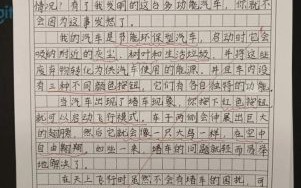 情况！有了我发明的这台多功能汽车，就不
会因为这事发愁了。
我的汽车是节能环保型汽车，启动时它会
吸附附近的灰尘、树叶和生活垃圾，并将这些
废弃物转化为供汽车使用的能源。并且车内设
有三种不同颜色按钮，它们有各自独特的功能。
当汽车出现了堵车现象，你按下红色按钮
就可以启动飞行模式，车子两侧会伸展出巨大
的翅膀，然后它就会像一只大鸟一样，在空中
自由翱翔，如此一来，堵车的问题就轻而易举
地解决了。
在天上飞行时虽然不会有堵车的困扰，可